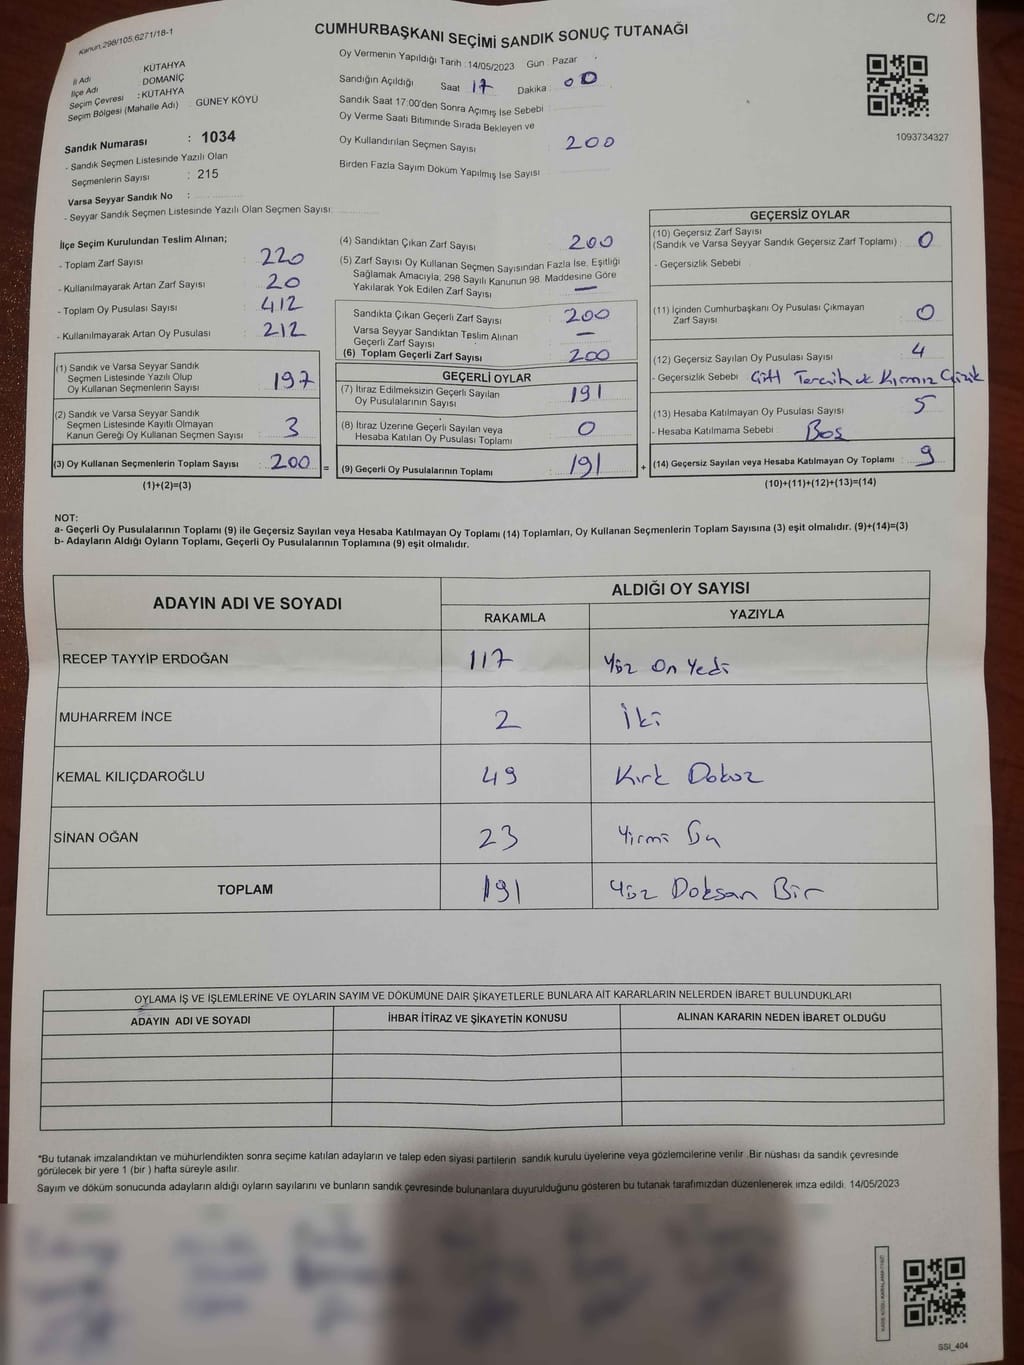 Kanun:298/105;6271/18-1
C/2
CUMHURBAŞKANI SEÇİMİ SANDIK SONUÇ TUTANAĞI
İl Adı KÜTAHYA
İlçe Adı DOMANİÇ
Seçim Çevresi : KÜTAHYA
Seçim Bölgesi (Mahalle Adı) GÜNEY KÖYÜ
Sandık Numarası : 1034
- Sandık Seçmen Listesinde Yazılı Olan
Seçmenlerin Sayısı : 215
Varsa Seyyar Sandık No :
- Seyyar Sandık Seçmen Listesinde Yazılı Olan Seçmen Sayısı:
Oy Vermenin Yapıldığı Tarih :14/05/2023 Gün : Pazar
Sandığın Açıldığı Saat 17 Dakika : 00
Sandık Saat 17:00'den Sonra Açımış İse Sebebi :
Oy Verme Saati Bitiminde Sırada Bekleyen ve
Oy Kullandırılan Seçmen Sayısı : 200
Birden Fazla Sayım Döküm Yapılmış İse Sayısı :
1093734327
İlçe Seçim Kurulundan Teslim Alınan;
- Toplam Zarf Sayısı : 220
- Kullanılmayarak Artan Zarf Sayısı : 20
- Toplam Oy Pusulası Sayısı : 412
- Kullanılmayarak Artan Oy Pusulası : 212
(1) Sandık ve Varsa Seyyar Sandık
Seçmen Listesinde Yazılı Olup
Oy Kullanan Seçmenlerin Sayısı : 197
(2) Sandık ve Varsa Seyyar Sandık
Seçmen Listesinde Kayıtlı Olmayan
Kanun Gereği Oy Kullanan Seçmen Sayısı : 3
(3) Oy Kullanan Seçmenlerin Toplam Sayısı : 200 =
(1)+(2)=(3)
(4) Sandıktan Çıkan Zarf Sayısı : 200
(5) Zarf Sayısı Oy Kullanan Seçmen Sayısından Fazla İse, Eşitliği
Sağlamak Amacıyla, 298 Sayılı Kanunun 98. Maddesine Göre
Yakılarak Yok Edilen Zarf Sayısı : —
Sandıkta Çıkan Geçerli Zarf Sayısı : 200
Varsa Seyyar Sandıktan Teslim Alınan
Geçerli Zarf Sayısı : —
(6) Toplam Geçerli Zarf Sayısı : 200
GEÇERLİ OYLAR
(7) İtiraz Edilmeksizin Geçerli Sayılan
Oy Pusulalarının Sayısı : 191
(8) İtiraz Üzerine Geçerli Sayılan veya
Hesaba Katılan Oy Pusulası Toplamı : 0
(9) Geçerli Oy Pusulalarının Toplamı : 191 +
GEÇERSİZ OYLAR
(10) Geçersiz Zarf Sayısı
(Sandık ve Varsa Seyyar Sandık Geçersiz Zarf Toplamı) : 0
- Geçersizlik Sebebi :
(11) İçinden Cumhurbaşkanı Oy Pusulası Çıkmayan
Zarf Sayısı : 0
(12) Geçersiz Sayılan Oy Pusulası Sayısı : 4
- Geçersizlik Sebebi : Çift Tercih
(13) Hesaba Katılmayan Oy Pusulası Sayısı : 5
- Hesaba Katılmama Sebebi : Boş
(14) Geçersiz Sayılan veya Hesaba Katılmayan Oy Toplamı : 9
(10)+(11)+(12)+(13)=(14)
NOT:
a- Geçerli Oy Pusulalarının Toplamı (9) ile Geçersiz Sayılan veya Hesaba Katılmayan Oy Toplamı (14) Toplamları, Oy Kullanan Seçmenlerin Toplam Sayısına (3) eşit olmalıdır. (9)+(14)=(3)
b- Adayların Aldığı Oyların Toplamı, Geçerli Oy Pusulalarının Toplamına (9) eşit olmalıdır.
ADAYIN ADI VE SOYADI ALDIĞI OY SAYISI
RAKAMLA YAZIYLA
RECEP TAYYİP ERDOĞAN 117 Yüz On Yedi
MUHARREM İNCE 2 İki
KEMAL KILIÇDAROĞLU 49 Kırk Dokuz
SİNAN OĞAN 23 Yirmi Üç
TOPLAM 191 Yüz Doksan Bir
OYLAMA İŞ VE İŞLEMLERİNE VE OYLARIN SAYIM VE DÖKÜMÜNE DAİR ŞİKAYETLERLE BUNLARA AİT KARARLARIN NELERDEN İBARET BULUNDUKLARI
ADAYIN ADI VE SOYADI İHBAR İTİRAZ VE ŞİKAYETİN KONUSU ALINAN KARARIN NEDEN İBARET OLDUĞU
*Bu tutanak imzalandıktan ve mühürlendikten sonra seçime katılan adayların ve talep eden siyasi partilerin sandık kurulu üyelerine veya gözlemcilerine verilir .Bir nüshası da sandık çevresinde
görülecek bir yere 1 (bir ) hafta süreyle asılır.
Sayım ve döküm sonucunda adayların aldığı oyların sayılarını ve bunların sandık çevresinde bulunanlara duyurulduğunu gösteren bu tutanak tarafımızdan düzenlenerek imza edildi. 14/05/2023
SSI_404